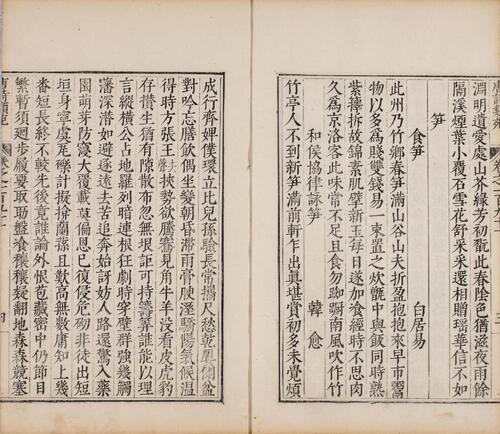 淵明遺愛處山芥綠芳初翫此春陰色猶滋夜雨餘
隔溪煙葉小覆石雪花舒采采還相贈瑶華信不如
筍
食筍 白居易
此州乃竹鄉春筍滿山谷山夫折盈抱抱來早市鬻
物以多為賤雙錢易一束置之炊甑中與飯同時熟
紫籜拆故錦素肌擘新玉每日遂加飡經時不思肉
久為京洛客此味常不足且食勿踟蹰南風吹作竹
和侯協律詠筍 韓愈
竹亭人不到新筍滿前軒乍出真堪賞初多未覺煩
成行齊婢僕環立比兒孫驗長常攜尺愁乾屢側盆
對吟忘膳飲偶坐變朝昏滯雨膏腴溼驕陽氣候溫
得時方張王挾勢欲騰騫見角牛羊沒看皮虎豹
存攅生猶有隙散布忽無垠詎可持籌算誰能以理
言縱橫公占地羅列暗連根狂劇時穿壁群強幾觸
藩深潛如避逐遠去若追奔始訝妨人路還驚入藥
園萌芽防寖大覆載莫偏恩已復侵危砌非徒出短
垣身寧虞瓦礫計擬揜蘭蓀且歎高無數庸知上幾
番短長終不較先後竟誰論外恨苞藏密中仍節目
繁暫須迴步履要取助盤飧穰穰疑翻地森森競塞